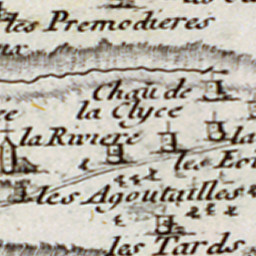 les Premodieres
Chau de
la Clyce
la Riviere
la
les
les Agoutailles
les Tards